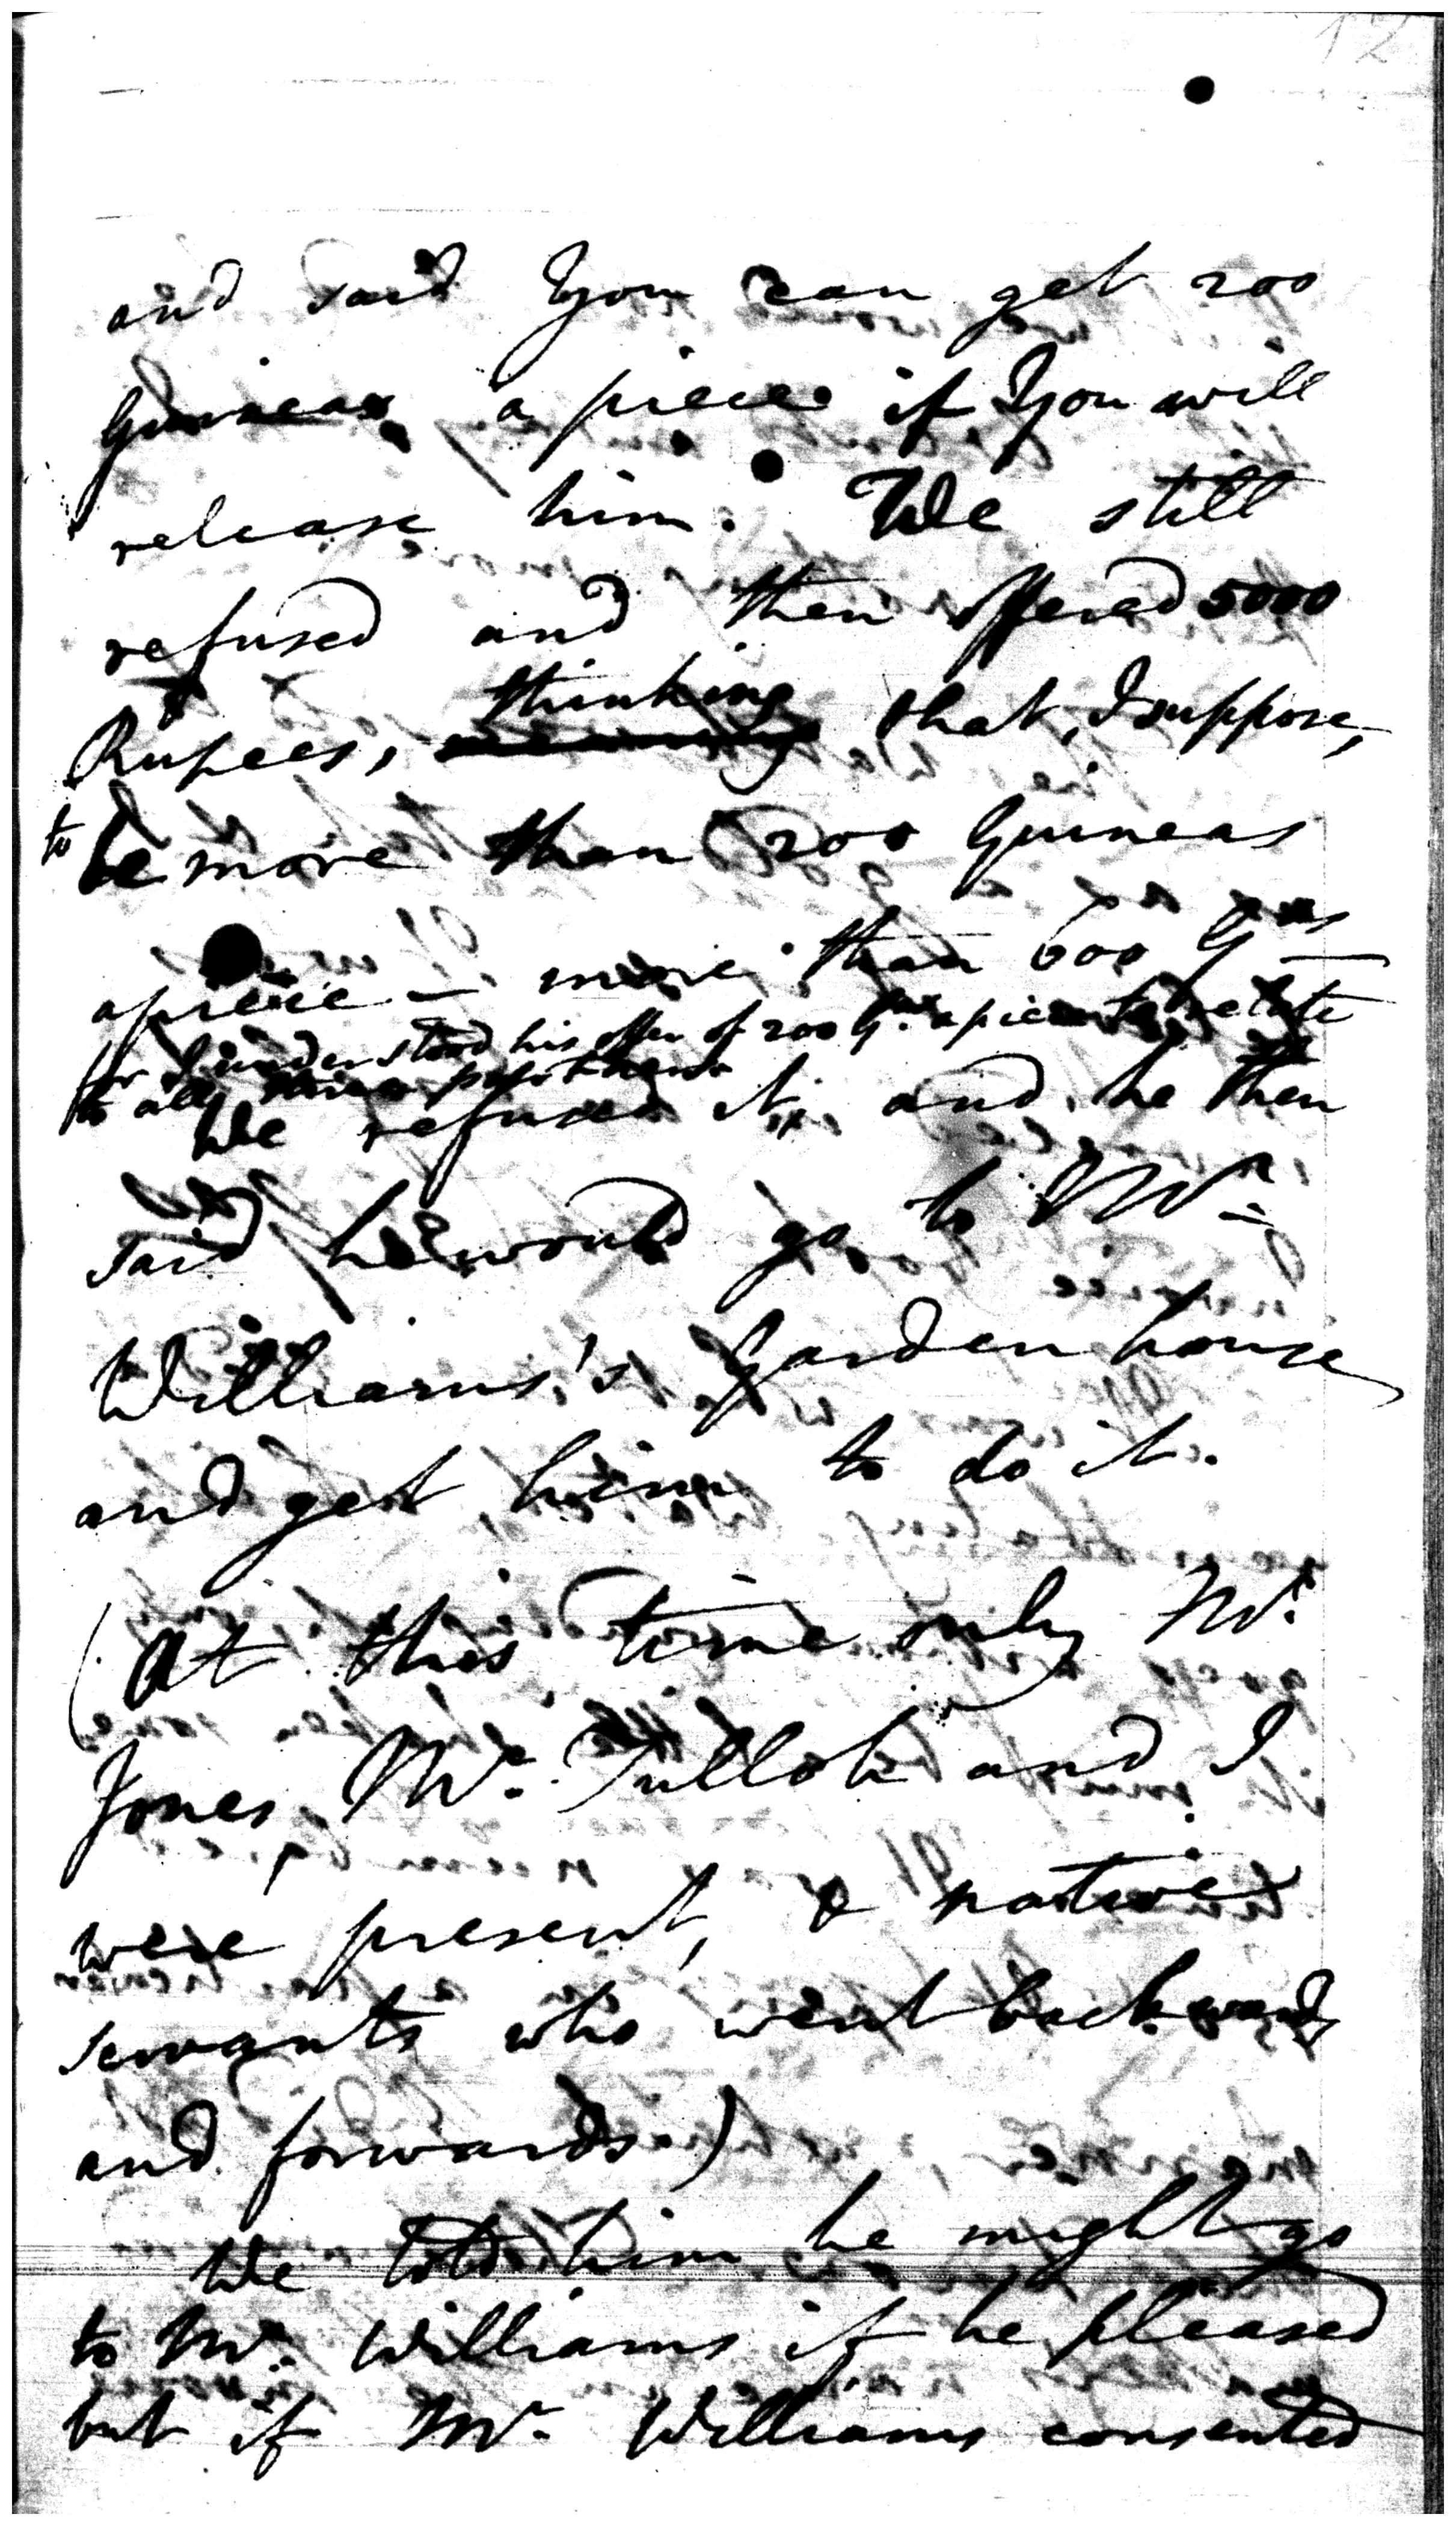 12
and said You can get 200
Guineas a piece if You will
release him. We still
refused and then offered 5000
Rupees, thinking that, I suppose,
to be more than 200 Guineas
apiece — more than 600 G^as
for I understood his offer of 200 G^as apiece to relate
to all three persons
We refused it, and he then
said he would go to M^r
Williams's Garden house
and get him to do it.
(At this time only M^r
Jones M^r Tulloh and I
were present, & native
servants who went backwards
and forwards)
We told him he might go
to M^r Williams if he pleased
but if M^r Williams consented